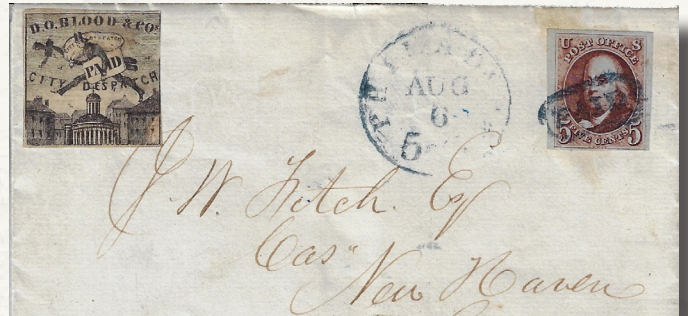 D.O. BLOOD & CO'S
PAID
CITY DESPATCH
AUG
6
5
U POST OFFICE S
5 FIVE CENTS 5
J. W. Fitch. Esq
Cas"
New Haven